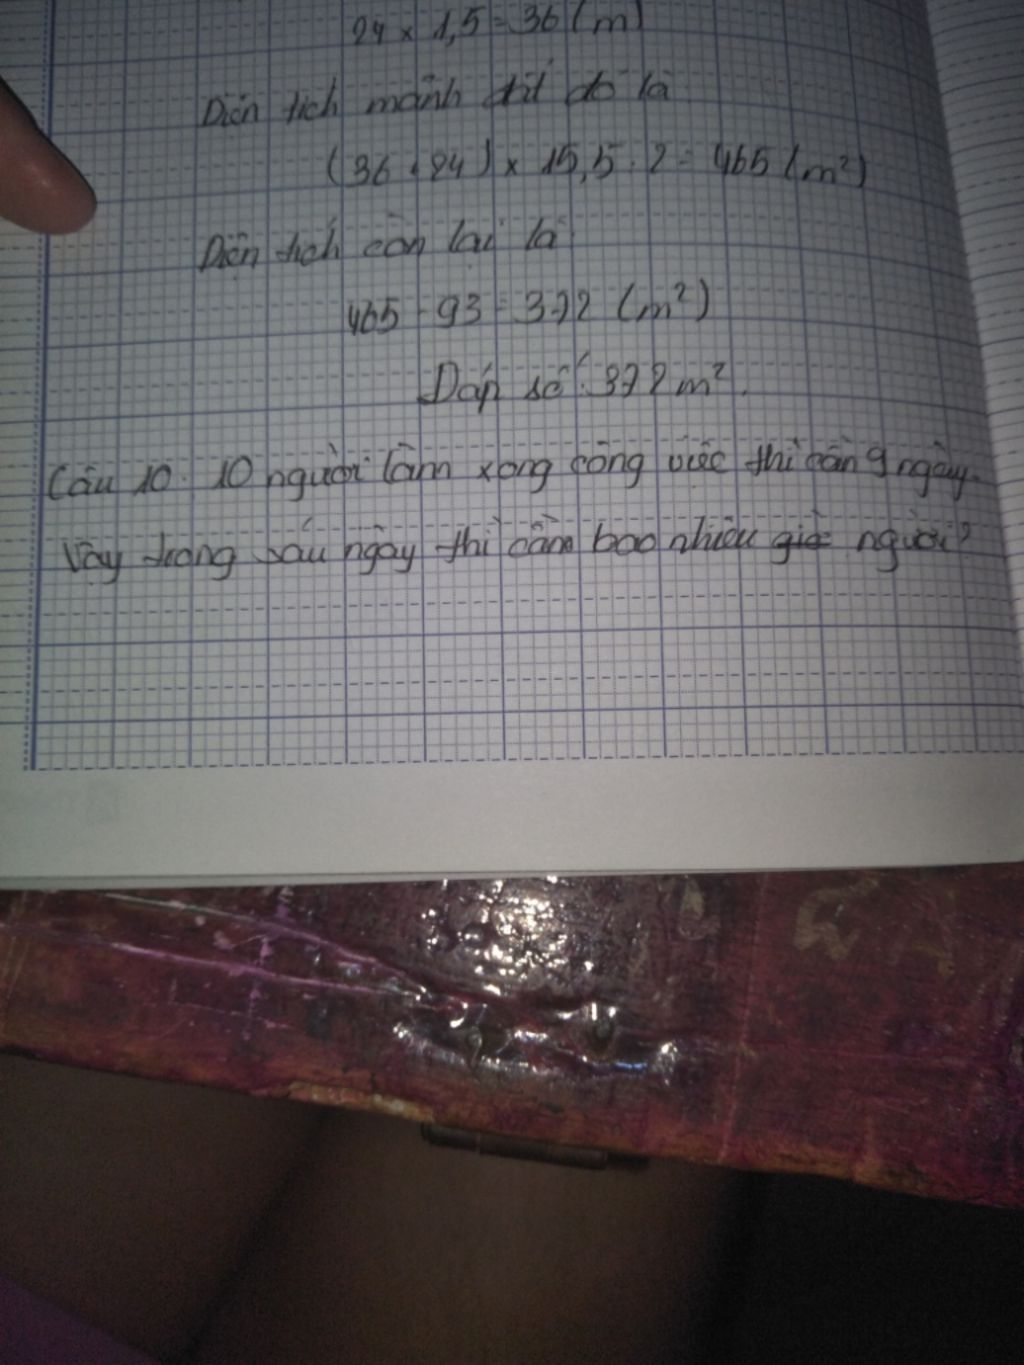 24 x 1,5 = 36 (m)
Diện tích mảnh đất đó là
(36 + 24) x 15,5 : 2 = 465 (m²)
Diện tích còn lại là
465 - 93 = 372 (m²)
Đáp số: 372 m².
Câu 10. 10 người làm xong công việc thì cần 9 ngày.
Vậy trong sáu ngày thì cần bao nhiêu người?